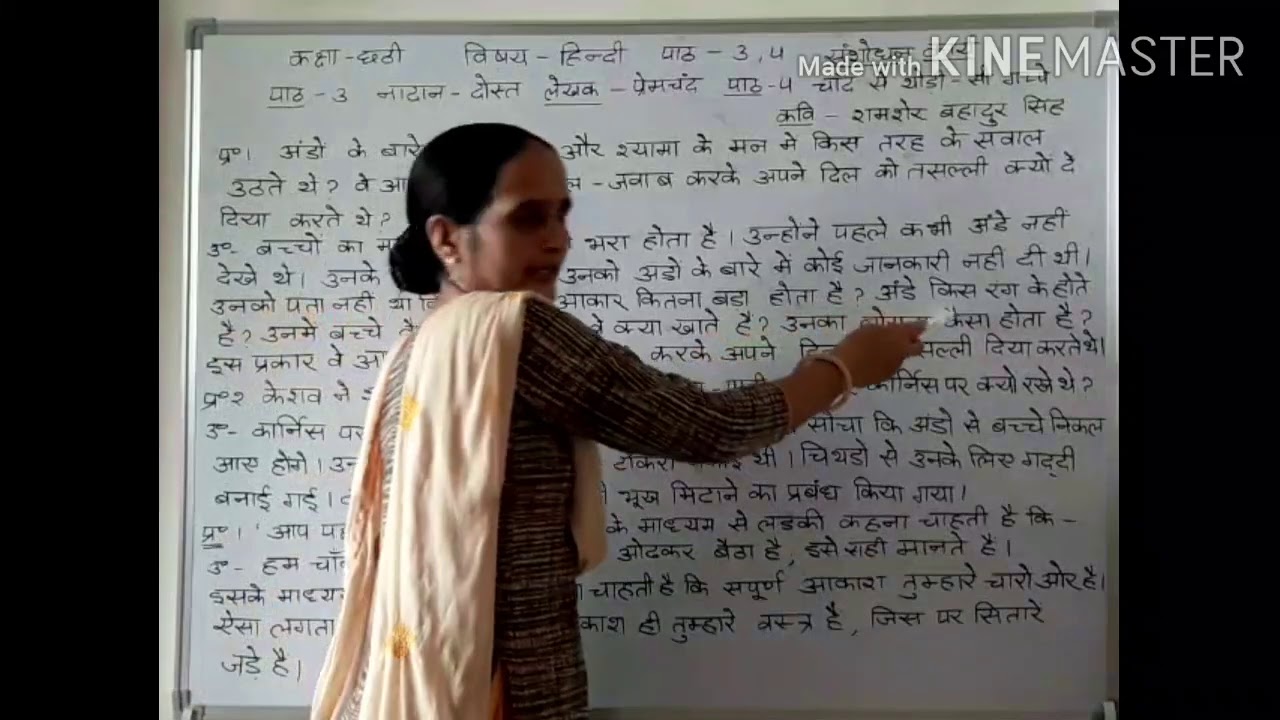 Made with KINEMASTER
कक्षा - छठी विषय - हिन्दी पाठ - 3, 4
पाठ - 3 नादान - दोस्त लेखक - प्रेमचंद पाठ - 4 चाँद से थोड़ी - सी गप्पे
कवि - शमशेर बहादुर सिंह
प्र॰1 अंडो के बारे और श्यामा के मन मे किस तरह के सवाल
उठते थे? वे - जवाब करके अपने दिल को तसल्ली क्यों दे
दिया करते थे?
उ॰- बच्चों का भरा होता है। उन्होंने पहले कभी अंडे नही
देखे थे। उनके उनको अंडो के बारे में कोई जानकारी नही दी थी।
उनको पता नही था आकार कितना बड़ा होता है? अंडे किस रंग के होते
है? उनमे बच्चे वे क्या खाते है? उनका कैसा होता है?
इस प्रकार वे करके अपने दिया करते थे।
प्र॰2 केशव ने कार्निस पर क्यो रखे थे?
उ॰- कार्निस पर सोचा कि अंडो से बच्चे निकल
आए होगे। टोकरी थी। चिथडो से उनके लिए गद्दी
बनाई गई। भूख मिटाने का प्रबंध किया गया।
प्र॰1 'आप के माध्यम से लडकी कहना चाहती है कि -
उ॰- हम ओढकर बैठा है, इसे सही मानते है।
इसके चाहती है कि सपूर्ण आकाश तुम्हारे चारो ओर है।
ऐसा लगता ही तुम्हारे वस्त्र है, जिस पर सितारे
जड़े है।